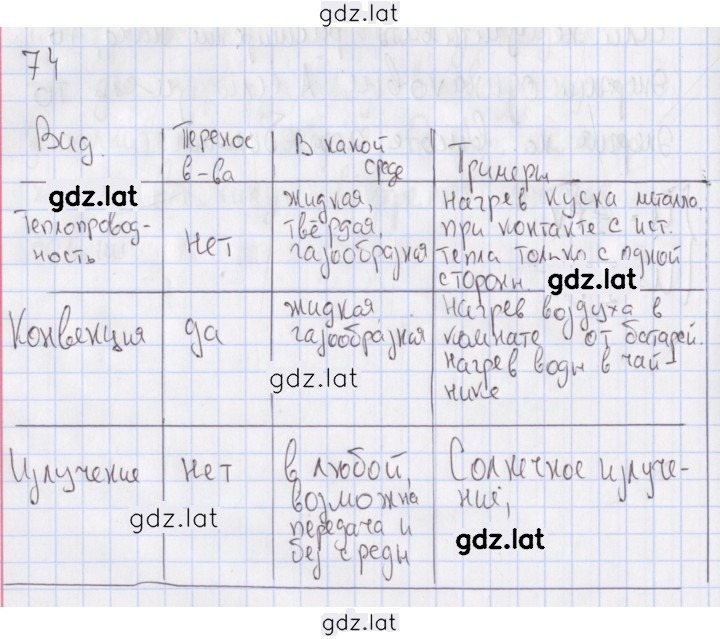 gdz.lat
74
Вид. Перенос В какой Примеры
в-ва среде
gdz.lat
Теплопровод- нет жидкая, нагрев куска металла,
ность твёрдая, при контакте с ист.
газообразная тепла только с одной
стороны.
gdz.lat
Конвекция да жидкая нагрев воздуха в
газообразная комнате от батарей.
нагрев воды в чай-
нике
gdz.lat
Излучение нет в любой, Солнечное излуче-
возможна ние,
передача и
без среды
gdz.lat
gdz.lat
gdz.lat